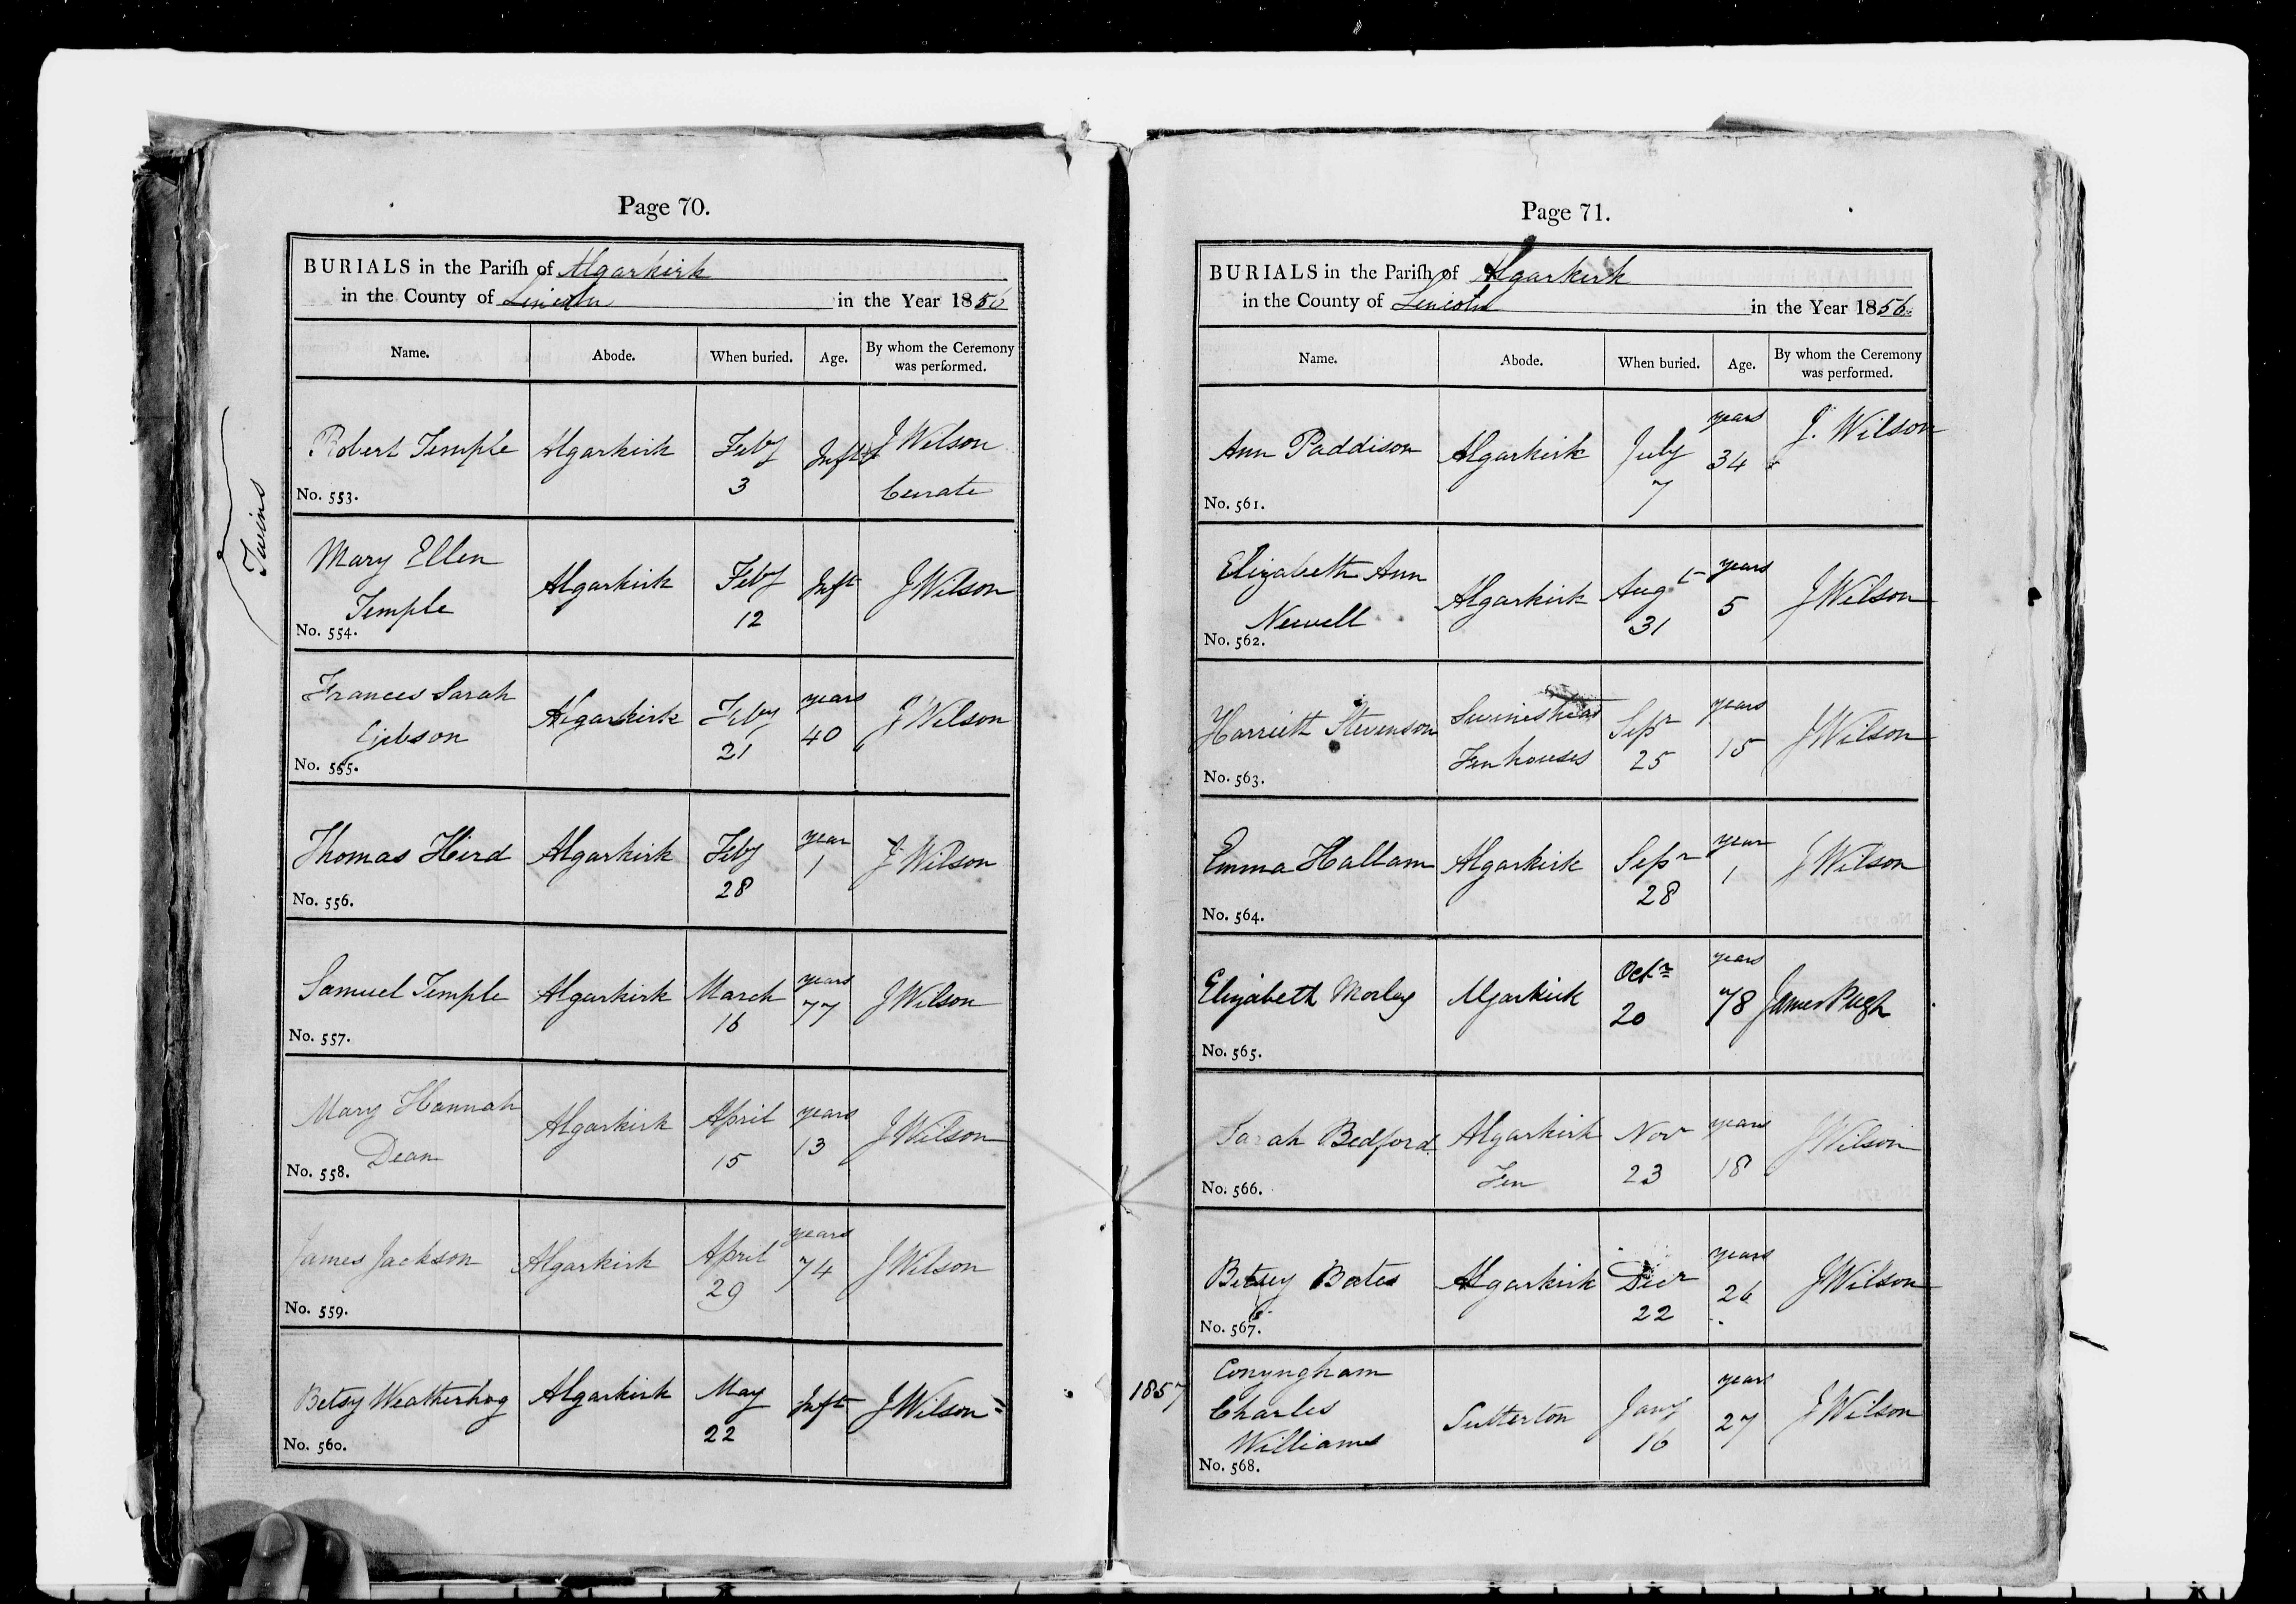 Page 70.
BURIALS in the Parish of Algarkirk
in the County of Lincoln in the Year 1856
Name. Abode. When buried. Age. By whom the Ceremony was performed.
Twins
Robert Temple Algarkirk Feby 3 Inft J Wilson Curate
No. 553.
Mary Ellen Temple Algarkirk Feby 12 Inft J Wilson
No. 554.
Frances Sarah Gibson Algarkirk Feby 21 years 40 J Wilson
No. 555.
Thomas Hird Algarkirk Feby 28 year 1 J Wilson
No. 556.
Samuel Temple Algarkirk March 16 years 77 J Wilson
No. 557.
Mary Hannah Dean Algarkirk April 15 years 13 J Wilson
No. 558.
James Jackson Algarkirk April 29 years 74 J Wilson
No. 559.
Betsy Weatherhog Algarkirk May 22 Inft J Wilson
No. 560.
Page 71.
BURIALS in the Parish of Algarkirk
in the County of Lincoln in the Year 1856.
Name. Abode. When buried. Age. By whom the Ceremony was performed.
Ann Paddison Algarkirk July 7 years 34 J. Wilson
No. 561.
Elizabeth Ann Newell Algarkirk Augt 31 years 5 J Wilson
No. 562.
Harriett Stevenson Swineshead Fen houses Sepr 25 years 15 J Wilson
No. 563.
Emma Hallam Algarkirk Sepr 28 year 1 J Wilson
No. 564.
Elizabeth Morley Algarkirk Octr 20 years 78 James Pugh
No. 565.
Sarah Bedford Algarkirk Fen Novr 23 years 18 J Wilson
No. 566.
Betsey Bates Algarkirk Decr 22 years 26 J Wilson
No. 567.
1857
Conyngham Charles Williams Sutterton Jany 16 years 27 J Wilson
No. 568.